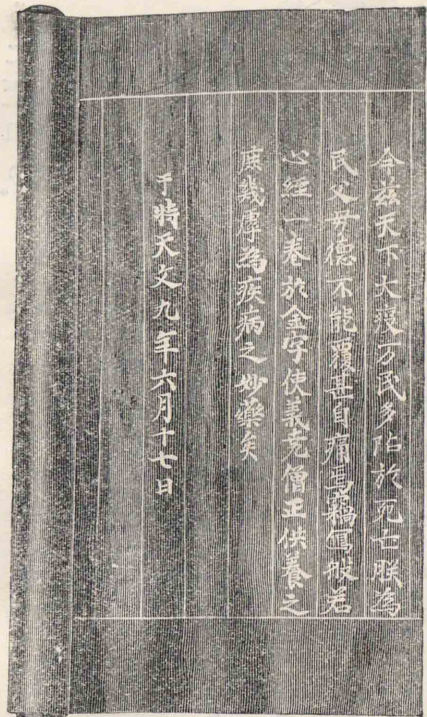 今茲天下大疫万民多阽於死亡朕為
民父母德不能覆甚自痛焉竊寫般若
心経一巻於金字使義尭僧正供養之
庶幾虖為疾病之妙藥矣
于時天文九年六月十七日